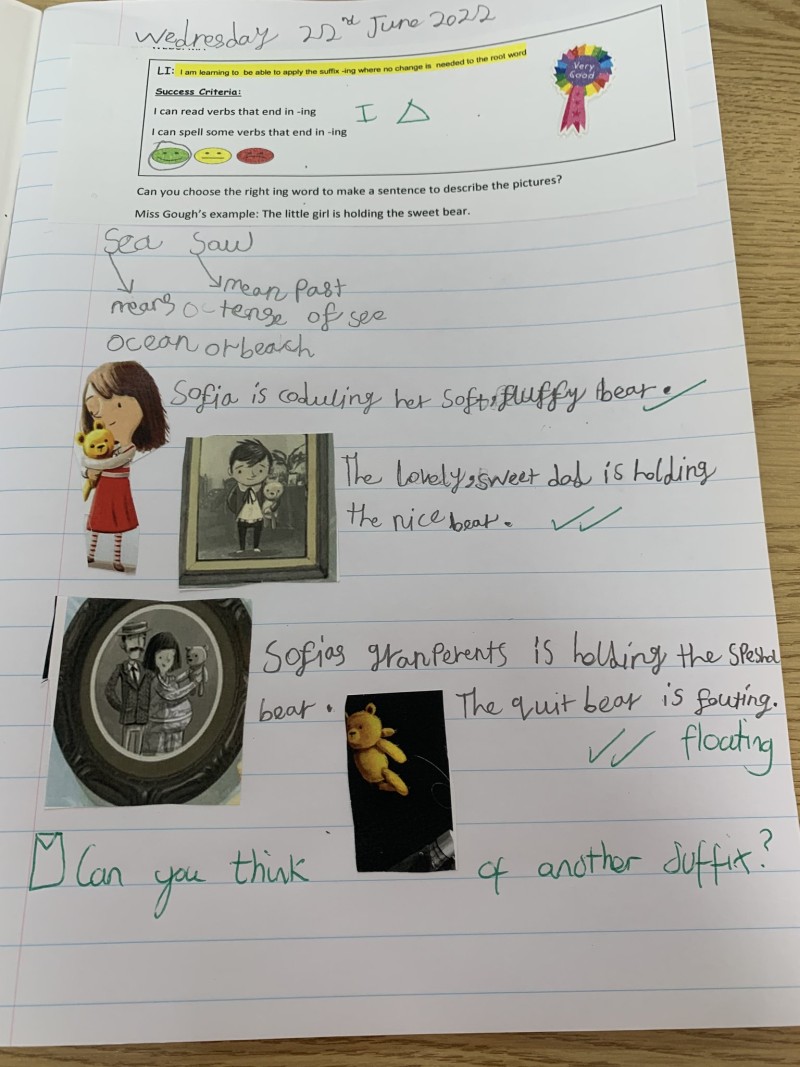 Wednesday 22nd June 2022
LI: I am learning to be able to apply the suffix -ing where no change is needed to the root word
Very Good
Success Criteria:
I can read verbs that end in -ing
I
I can spell some verbs that end in -ing
Can you choose the right ing word to make a sentence to describe the pictures?
Miss Gough's example: The little girl is holding the sweet bear.
Sea Saw
mean Past
means tense of see
ocean or beach
Sofia is coduling her soft, fluffy bear.
The lovely, sweet dad is holding
the nice bear.
Sofias granperents is holding the speshal
bear.
The quit bear is fouting.
floating
Can you think of another suffix?